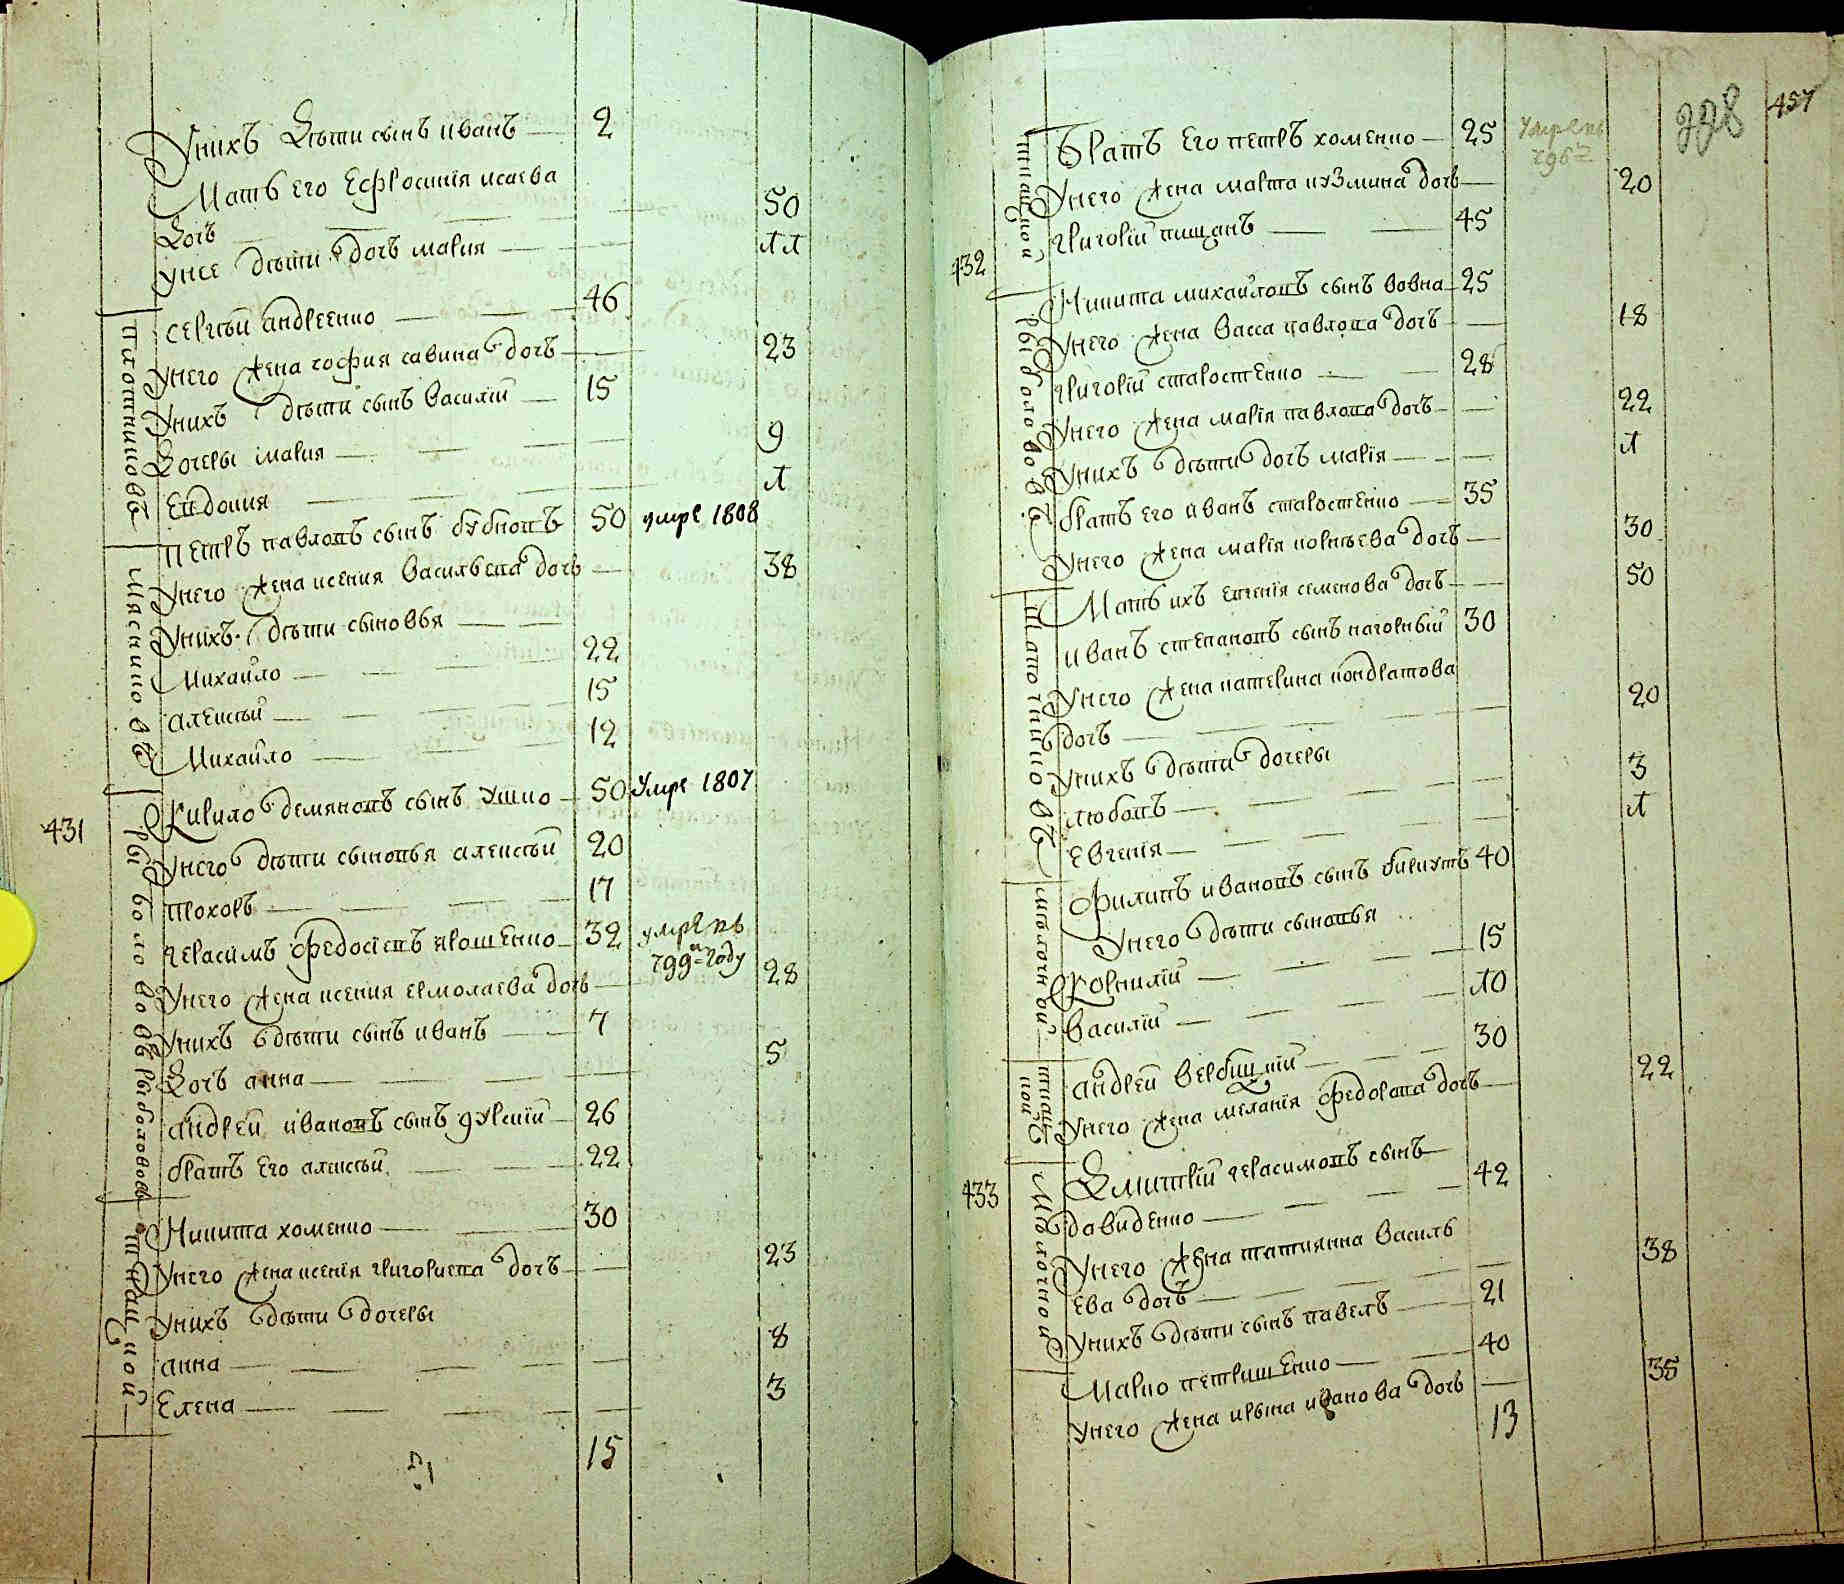 У них дѣти сынъ иванъ 2
Мать его Ефросинія исаева
Дочь 50
У нее дѣти дочь мария 11
сергѣй андреенко 46
У него жена софия савина дочь 23
У нихъ дѣти сынъ василій 15
Дочеры мария 9
Евдокия 1
плотниковъ
петръ павловъ сынъ бубновъ 50 умре 1808
У него жена ксения васильева дочь 38
У нихъ дѣти сыновья
Михайло 22
алексѣй 15
Михайло 12
мясниковъ
431
Кирило демяновъ сынъ ушко 50 умре 1807
У него дѣти сыновья алексѣй 20
прохоръ 17
рыболововъ
герасимъ федосѣевъ ярошенко 32 умре въ
799м году
У него жена ксения ермолаева дочь 28
У нихъ дѣти сынъ иванъ 7
Дочь анна 5
андрей ивановъ сынъ 26
братъ его алексѣй 22
рыболововъ
Никита хоменко 30
У него жена ксенія григориева дочь 23
У нихъ дѣти дочеры
анна 8
Елена 3
ткацкой
15
457
братъ его петръ хоменко 25 умре въ
У него жена марта кузмина дочь 20
григорій пищанъ 45
ткацкой
432
Никита михайловъ сынъ вовка 25
У него жена васса павлова дочь 18
григорій старостенко 28
У него жена марія павлова дочь 22
У нихъ дѣти дочь марія 1
братъ его иванъ старостенко 35
У него жена марія корнѣева дочь 30
Мать ихъ евгенія семенова дочь 50
рыболововъ
иванъ степановъ сынъ нагорный 30
У него жена катерина кондратова
дочь 20
У нихъ дѣти дочеры
любовь 3
Евгенія 1
шапошниковъ
Филипъ ивановъ сынъ 40
У него дѣти сыновья
Корнилій 15
василій 10
мѣлочной
андрей вербицкій 30
У него жена меланія федорова дочь 22
433
Дмитрій герасимовъ сынъ
давиденко 42
У него жена татиянна василь
ева дочь 38
У нихъ дѣти сынъ павелъ 21
Марко петрищенко 40
У него жена ирына иванова дочь 35
мѣлочной
13